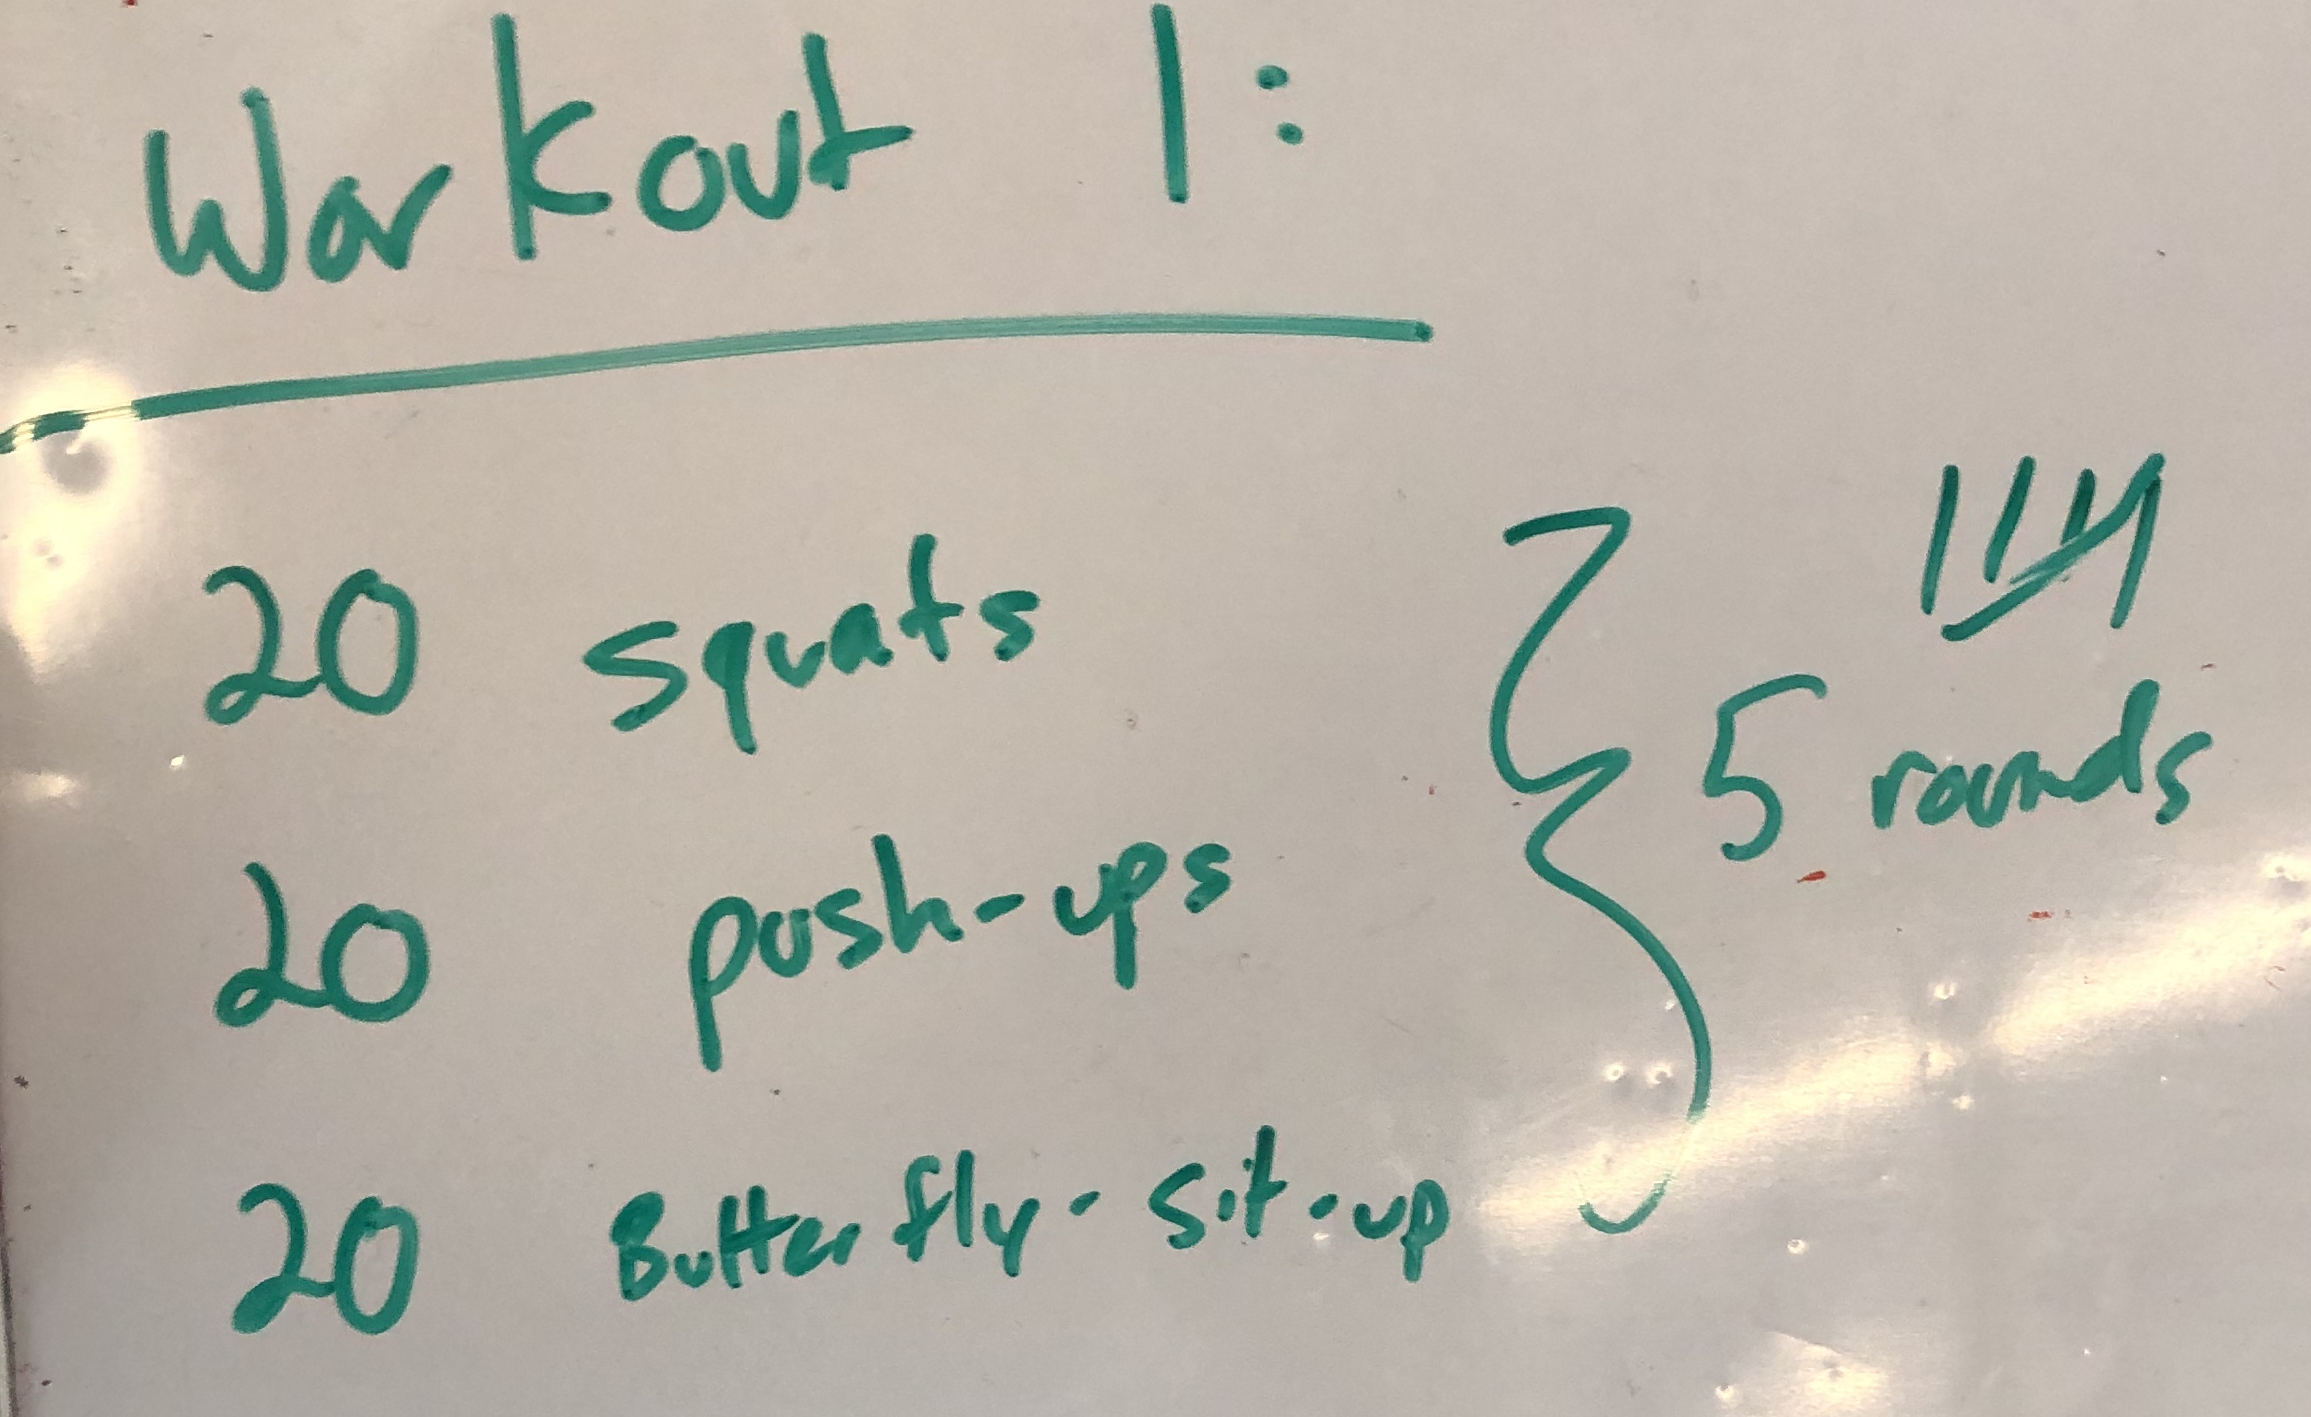 Workout 1:
20 squats
20 push-ups
20 Butterfly-sit-up
5 rounds